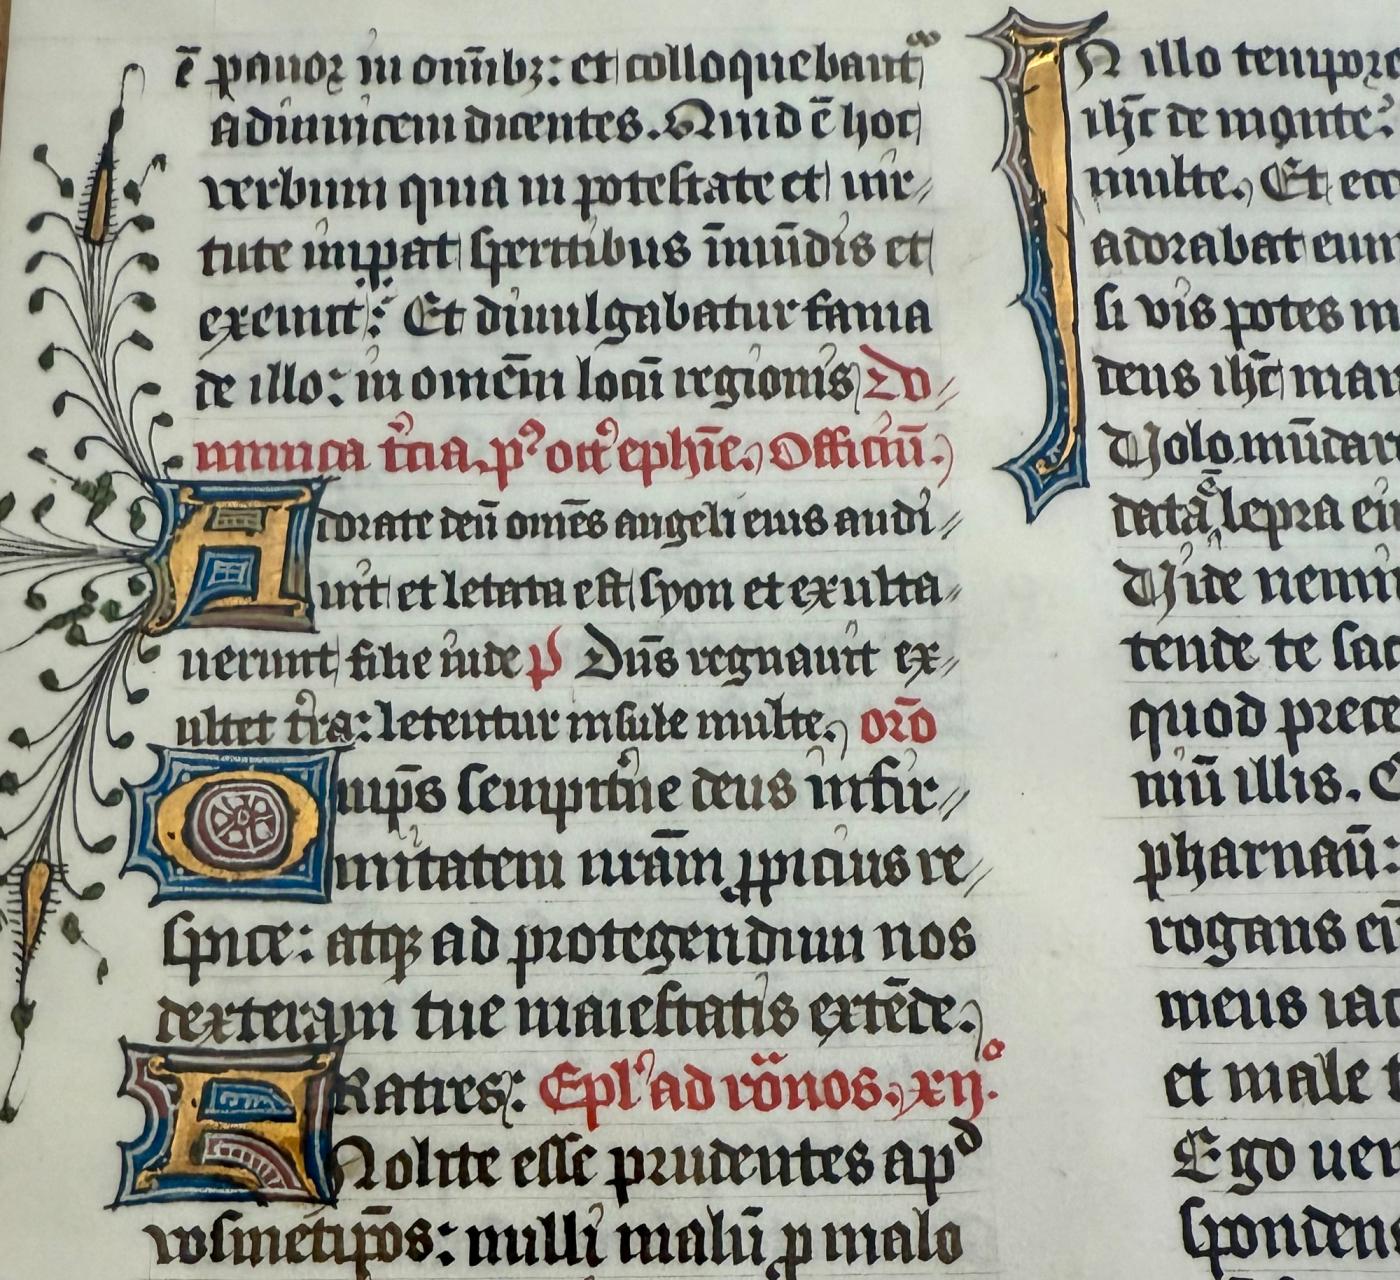 ē pauoꝛ in om̄ibꝫ: et colloquebantᷣ
adinuicem dicentes. Quid ē hoc
verbum quia in potestate et uir⸗
tute imꝑat spiritibus īmūdis et
exeunt: Et diuulgabatur fama
de illo: in omēm locū regionis Do⸗
minica t̓cia pꝰ oct̓ ephīe. Officiū.
Adorate deū om̄es angeli eius audi⸗
uit et letata est syon et exulta⸗
uerunt filie iude p̄ Dn̄s regnauit ex⸗
ultet t̓ra: letentur insule multe. or̄o
Om̄ps sempit̓ne deus infir⸗
mitatem nr̄am ꝓpicius re⸗
spice: atqꝫ ad protegendum nos
dexteram tue maiestatis extēde.
FRatres: Epl̓ ad rōnos. xij.º
Nolite esse prudentes apᵈ
vosmetip̄os: nulli malū ꝓ malo
IN illo tempore
ih̄c de monte:
multe. Et ecc
adorabat eum
si vis potes m
tens ih̄c man
Volo mūdar
data ē lepra ei
Vide nemin
tende te sac
quod prece
niū illis. C
pharnaū:
rogans eū
meus iac
et male t
Ego uen
sponden